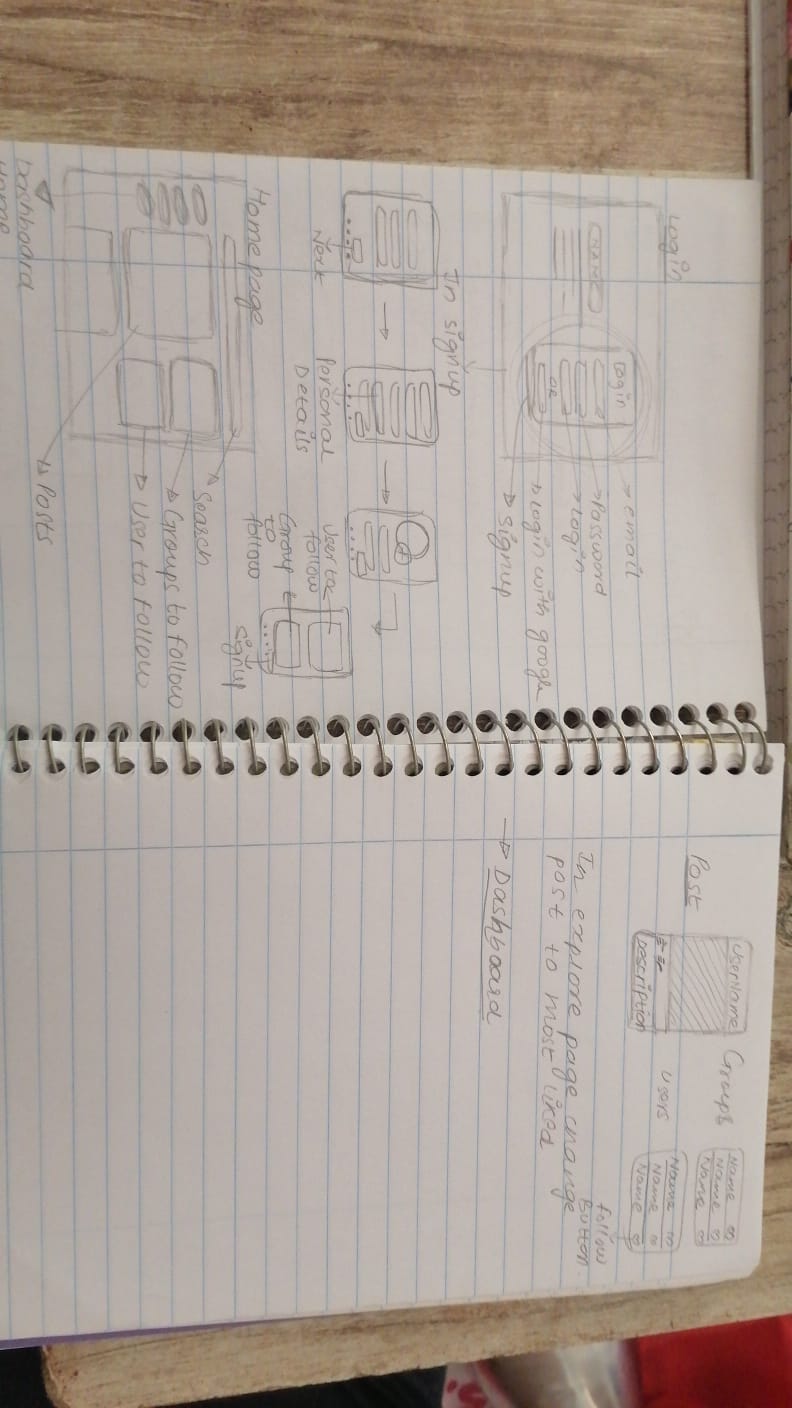 Login
NAME
Login
OR
email
Password
Login
Login with google
Signup
In signup
Next
Personal
Details
User to
follow
Group
to
follow
Signup
Home page
Search
Groups to follow
User to follow
Posts
Dashboard
Home
Post
UserName
Description
Groups
Name
Name
Name
Users
Name
Name
Name
follow
Button
In explore page change
post to most liked
Dashboard